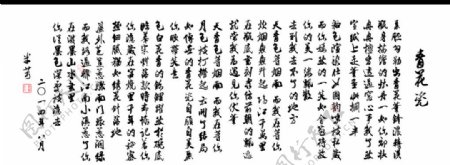 青花瓷
素胚勾勒出青花笔锋浓转淡
瓶身描绘的牡丹一如你初妆
冉冉檀香透过窗心事我了然
宣纸上走笔至此搁一半
釉色渲染仕女图韵味被私藏
而你嫣然的一笑如含苞待放
你的美一缕飘散
去到我去不了的地方
天青色等烟雨而我在等你
炊烟袅袅升起隔江千万里
在瓶底书汉隶仿前朝的飘逸
就当我为遇见你伏笔
天青色等烟雨而我在等你
月色被打捞起云开了结局
如传世的青花瓷自顾自美丽
你眼带笑意
色白花青的锦鲤跃然于碗底
临摹宋体落款时却惦记着你
你隐藏在窑烧里千年的秘密
极细腻犹如绣花针落地
帘外芭蕉惹骤雨门环惹铜绿
而我路过那江南小镇惹了你
在泼墨山水画里
你从墨色深处被隐去
二〇一四年 月